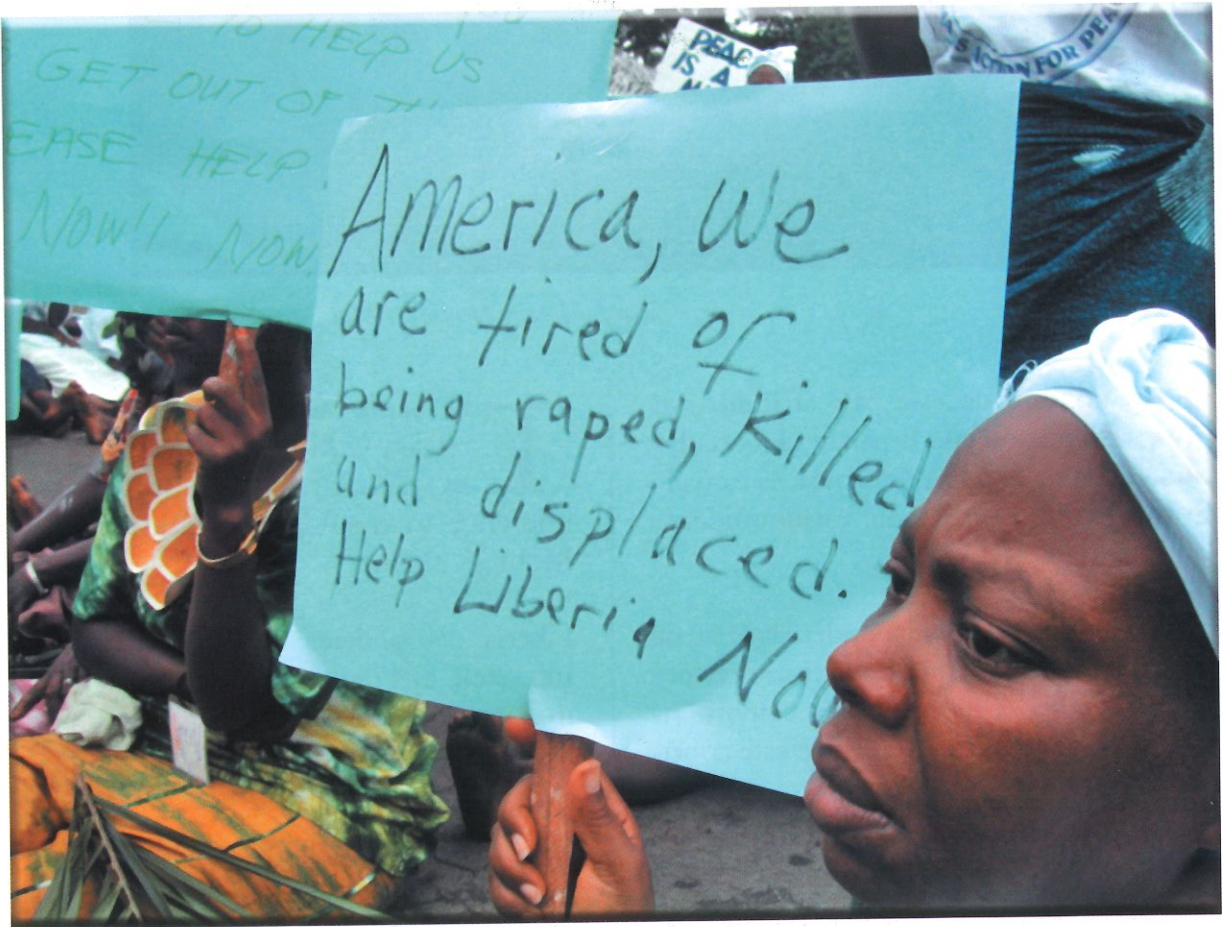 TO HELP US
GET OUT OF
EASE HELP
NOW!! NOW
PEACE
IS A
ACTION FOR PEA
America, We
are tired of
being raped, Killed
and displaced.
Help Liberia Now